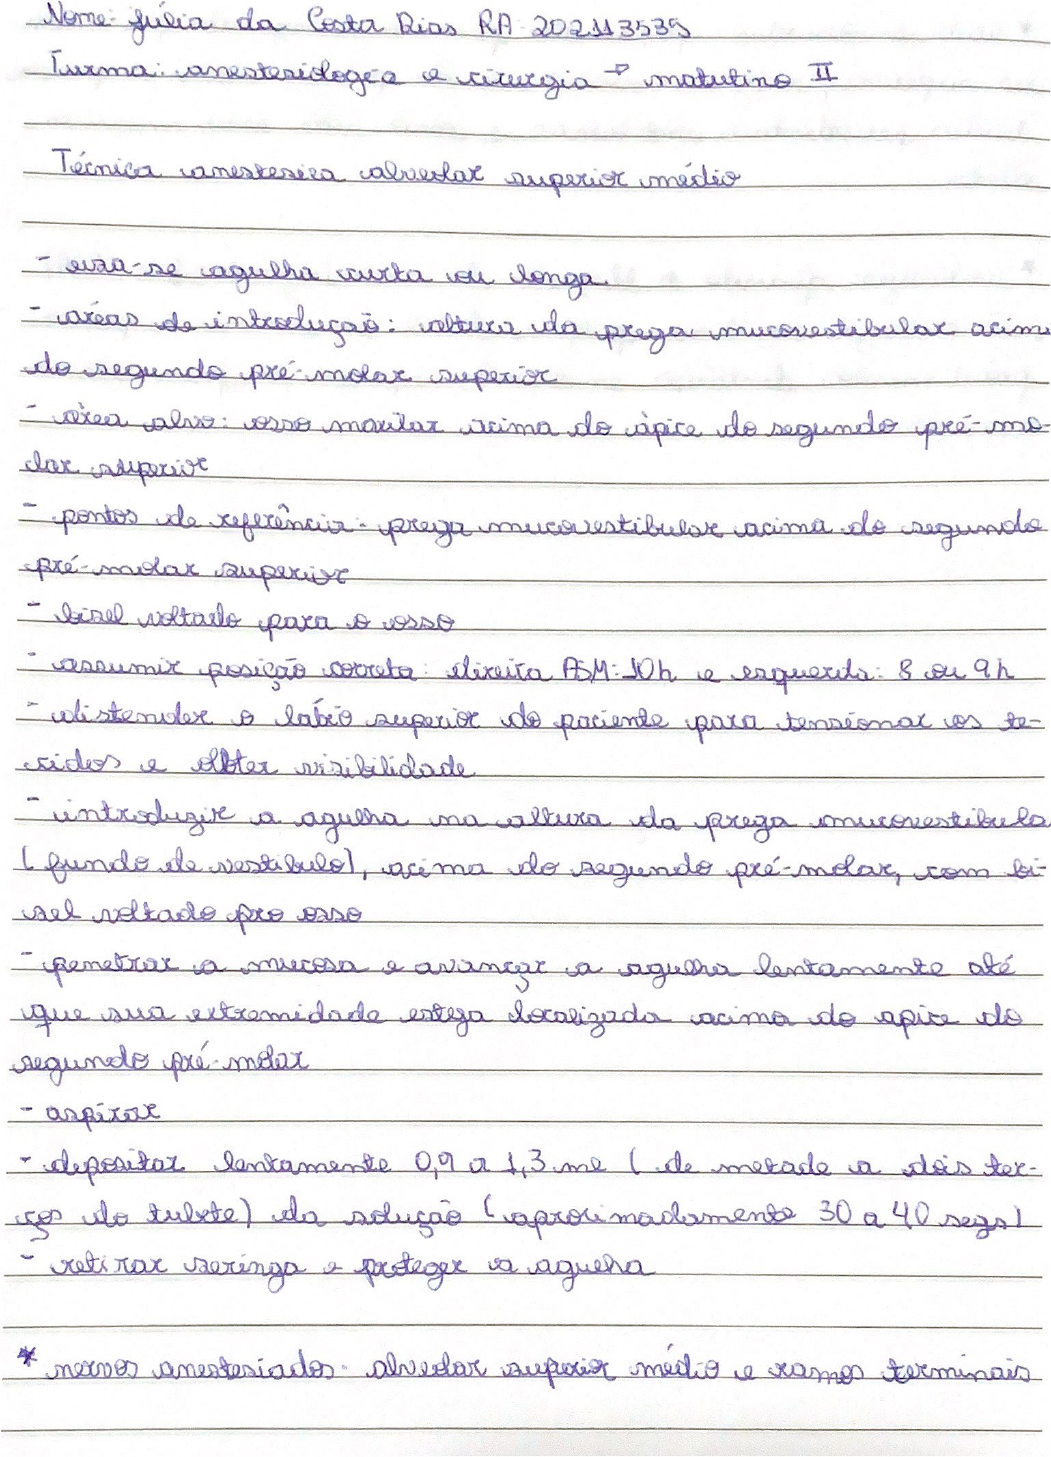 Nome: Júlia da Costa Dias RA: 202113535
Turma: anestesiologia e cirurgia → matutino II
Técnica anestesica alveolar superior médio
- usa-se agulha curta ou longa.
- áreas de introdução: altura da prega mucovestibular acima
do segundo pré-molar superior
- área alvo: osso maxilar acima do ápice do segundo pré-mo-
lar superior
- pontos de referência: prega mucovestibular acima do segundo
pré-molar superior
- bisel voltado para o osso
- assumir posição correta: direita ASM: 10h e esquerda: 8 ou 9h
- distender o lábio superior do paciente para tensionar os te-
cidos e obter visibilidade
- introduzir a agulha na altura da prega mucovestibula
(fundo de vestibulo), acima do segundo pré-molar, com bi-
sel voltado pro osso
- penetrar a mucosa e avançar a agulha lentamente até
que sua extremidade esteja localizada acima do apice do
segundo pré-molar
- aspirar
- depositar lentamente 0,9 a 1,3 ml (de metade a dois ter-
ços do tubete) da solução (aproximadamente 30 a 40 segs)
- retirar seringa e proteger a agulha
* nervos anestesiados: alveolar superior médio e ramos terminais